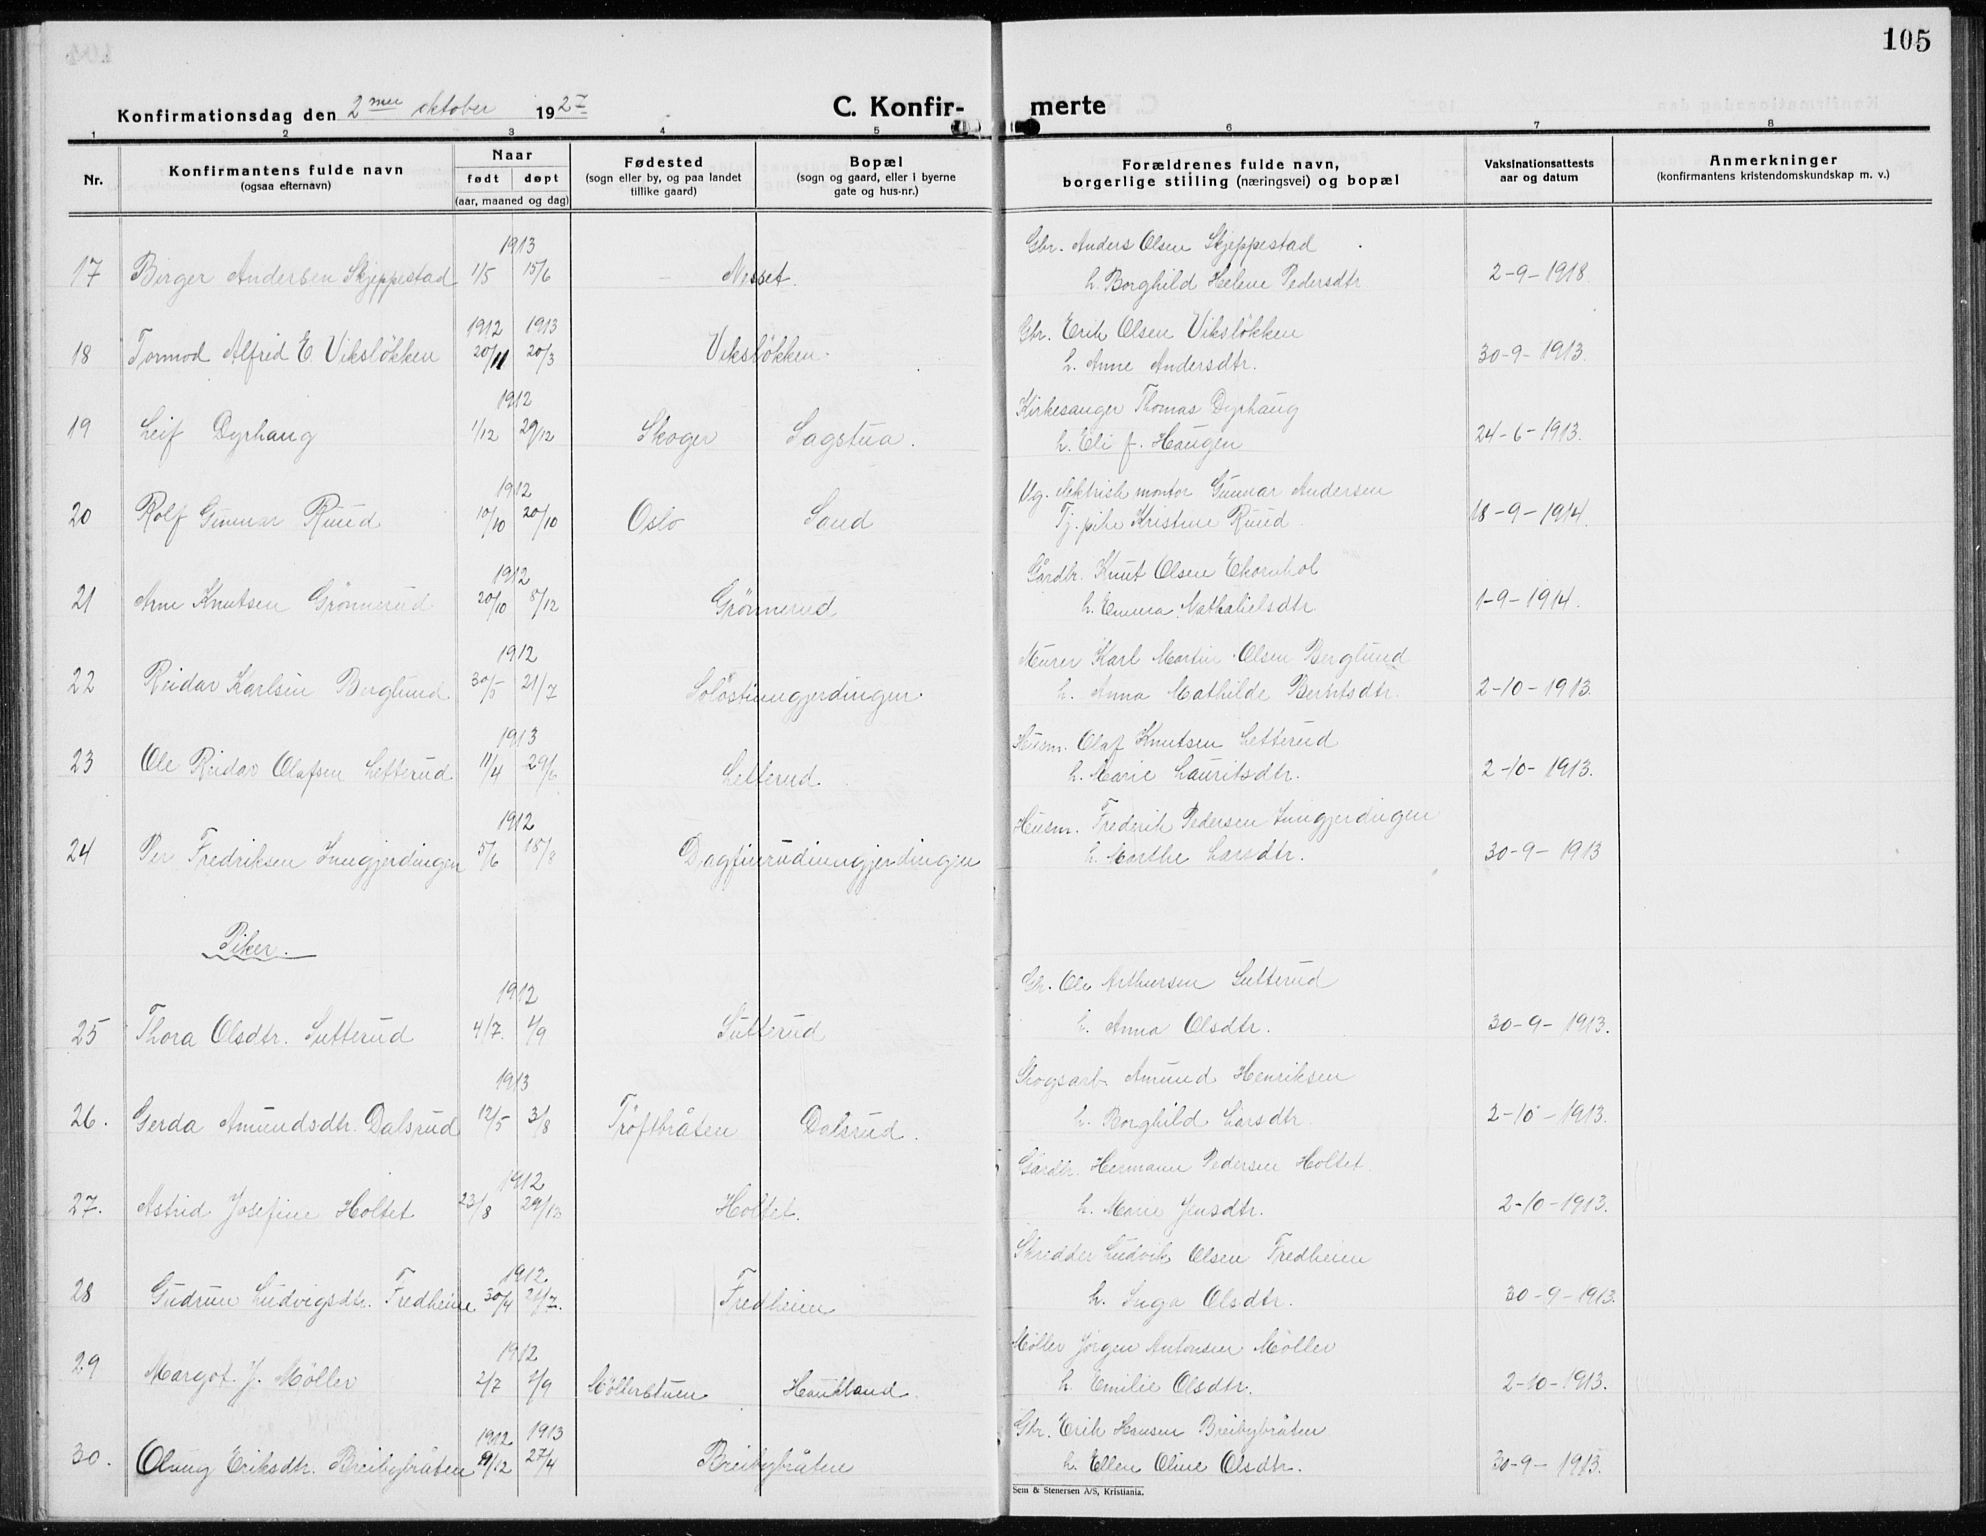 105
Konfirmationsdag den 2nen oktober 1927
C. Konfir- merte
1 2 3 4 5 6 7 8
Nr.
Konfirmantens fulde navn
(ogsaa efternavn)
Naar
født døpt
(aar, maaned og dag)
Fødested
(sogn eller by, og paa landet
tillike gaard)
Bopæl
(sogn og gaard, eller i byerne
gate og hus-nr.)
Forældrenes fulde navn,
borgerlige stilling (næringsvei) og bopæl
Vaksinationsattests
aar og datum
Anmerkninger
(konfirmantens kristendomskundskap m. v.)
1913 Gbr. Anders Olsen Skjeppestad
17 Birger Andersen Skjeppestad 1/5 15/6 Nesset. h. Borghild Helene Pedersdtr 2-9-1918
1912 1913 Gbr. Erik Olsen Viksløkken
18 Tormod Alfred E. Viksløkken 20/11 20/3 Viksløkken. h. Anne Andersdtr. 30-9-1913.
1912 Kirkesanger Thomas Dyrhaug
19 Leif Dyrhaug 1/12 29/12 Skoger Sagstua. h. Eli f. Haugen 24-6-1913.
1912 Ug. elektrisk montør Gunnar Andersen
20 Rolf Gunnar Ruud 10/10 20/10 Oslo Sand Tj. pike Kristine Ruud 18-9-1914.
1912 Gårdbr. Knut Olsen Ekornhol
21 Arne Knutsen Grønnerud 20/10 8/12 Grønnerud h. Emma Nathalielsdtr 1-9-1914.
1912 Murer Karl Martin Olsen Berglund
22 Reidar Karlsen Berglund 30/5 21/7 Soløstinngjerdingen h. Anna Mathilde Berntsdtr. 2-10-1913.
1913 Husm. Olaf Knutsen Letterud
23 Ole Reidar Olafsen Letterud 11/4 29/6 Letterud. h. Marie Lauritsdtr. 2-10-1913.
1912 Husm. Frederik Pedersen Inngjerdingen
24 Per Fredriksen Inngjerdingen 5/6 18/8 Dagfinrudinngjerdingen h. Marthe Larsdtr. 30-9-1913
Piker.
1912 Gbr. Ole Arthursen Sutterud
25 Thora Olsdtr. Sutterud 4/7. 1/9 Sutterud h. Anna Olsdtr. 30-9-1913.
1913 Skogsarb. Amund Henriksen
26. Gerda Amundsdtr. Dalsrud 12/5 3/8 Trøftbråten Dalsrud. h. Borghild Larsdtr. 2-10-1913.
1912 Gårdbr. Hermann Pedersen Holtet.
27. Astrid Josefine Holtet 23/8 29/12 Holtet. h. Marie Jensdtr. 2-10-1913.
1912 Skredder Ludvik Olsen Fredheim
28 Gudrun Ludvigsdtr. Fredheim 30/4 21/7. Fredheim h. Inga Olsdtr. 30-9-1913.
1912 Møller Jørgen Antonsen Møller
29 Margot. J. Møller 2/7 1/9 Møllerstuen Haukland. h. Emilie Olsdtr. 2-10-1913.
1912 1913 Gbr. Erik Hansen Breibybråten
30. Olaug Eriksdtr. Breibybråten 9/12 27/4 Breibybråten h. Ellen Oline Olsdtr. 30-9-1913.
Sem & Stenersen A/S, Kristiania.